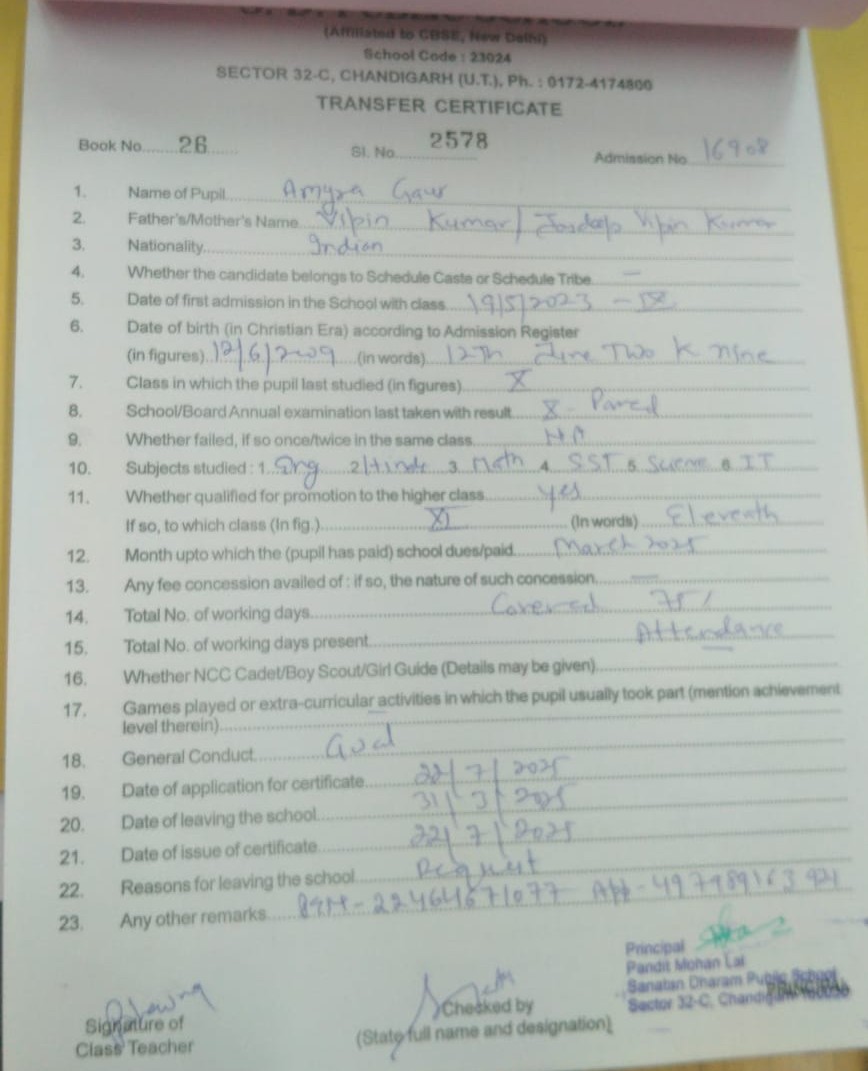 (Affiliated to CBSE, New Delhi)
School Code : 23024
SECTOR 32-C, CHANDIGARH (U.T.), Ph. : 0172-4174800
TRANSFER CERTIFICATE
Book No..... 26 Sl. No. 2578 Admission No. 16908
1. Name of Pupil Amyra Gaur
2. Father's/Mother's Name Vipin Kumar / Jasdeep Vipin Kumar
3. Nationality Indian
4. Whether the candidate belongs to Schedule Caste or Schedule Tribe —
5. Date of first admission in the School with class 19/5/2023 - IX
6. Date of birth (in Christian Era) according to Admission Register
(in figures) 12/6/2009 (in words) 12Th June Two K nine
7. Class in which the pupil last studied (in figures) X
8. School/Board Annual examination last taken with result X - Passed
9. Whether failed, if so once/twice in the same class NA
10. Subjects studied : 1. Eng 2 Hindi 3 Math 4 SST 5 Science 6 IT
11. Whether qualified for promotion to the higher class yes
If so, to which class (In fig.) XI (In words) Eleventh
12. Month upto which the (pupil has paid) school dues/paid March 2025
13. Any fee concession availed of : if so, the nature of such concession —
14. Total No. of working days Covered 75%
15. Total No. of working days present Attendance
16. Whether NCC Cadet/Boy Scout/Girl Guide (Details may be given)
17. Games played or extra-curricular activities in which the pupil usually took part (mention achievement
level therein) —
18. General Conduct Good
19. Date of application for certificate 22/7/2025
20. Date of leaving the school 31/3/2025
21. Date of issue of certificate 22/7/2025
22. Reasons for leaving the school Request
23. Any other remarks 22464671077 497989163921
Signature of
Class Teacher
Checked by
(State full name and designation)
Principal
Pandit Mohan Lal
Sanatan Dharam Public School
Sector 32-C, Chandigarh-160030
PRINCIPAL